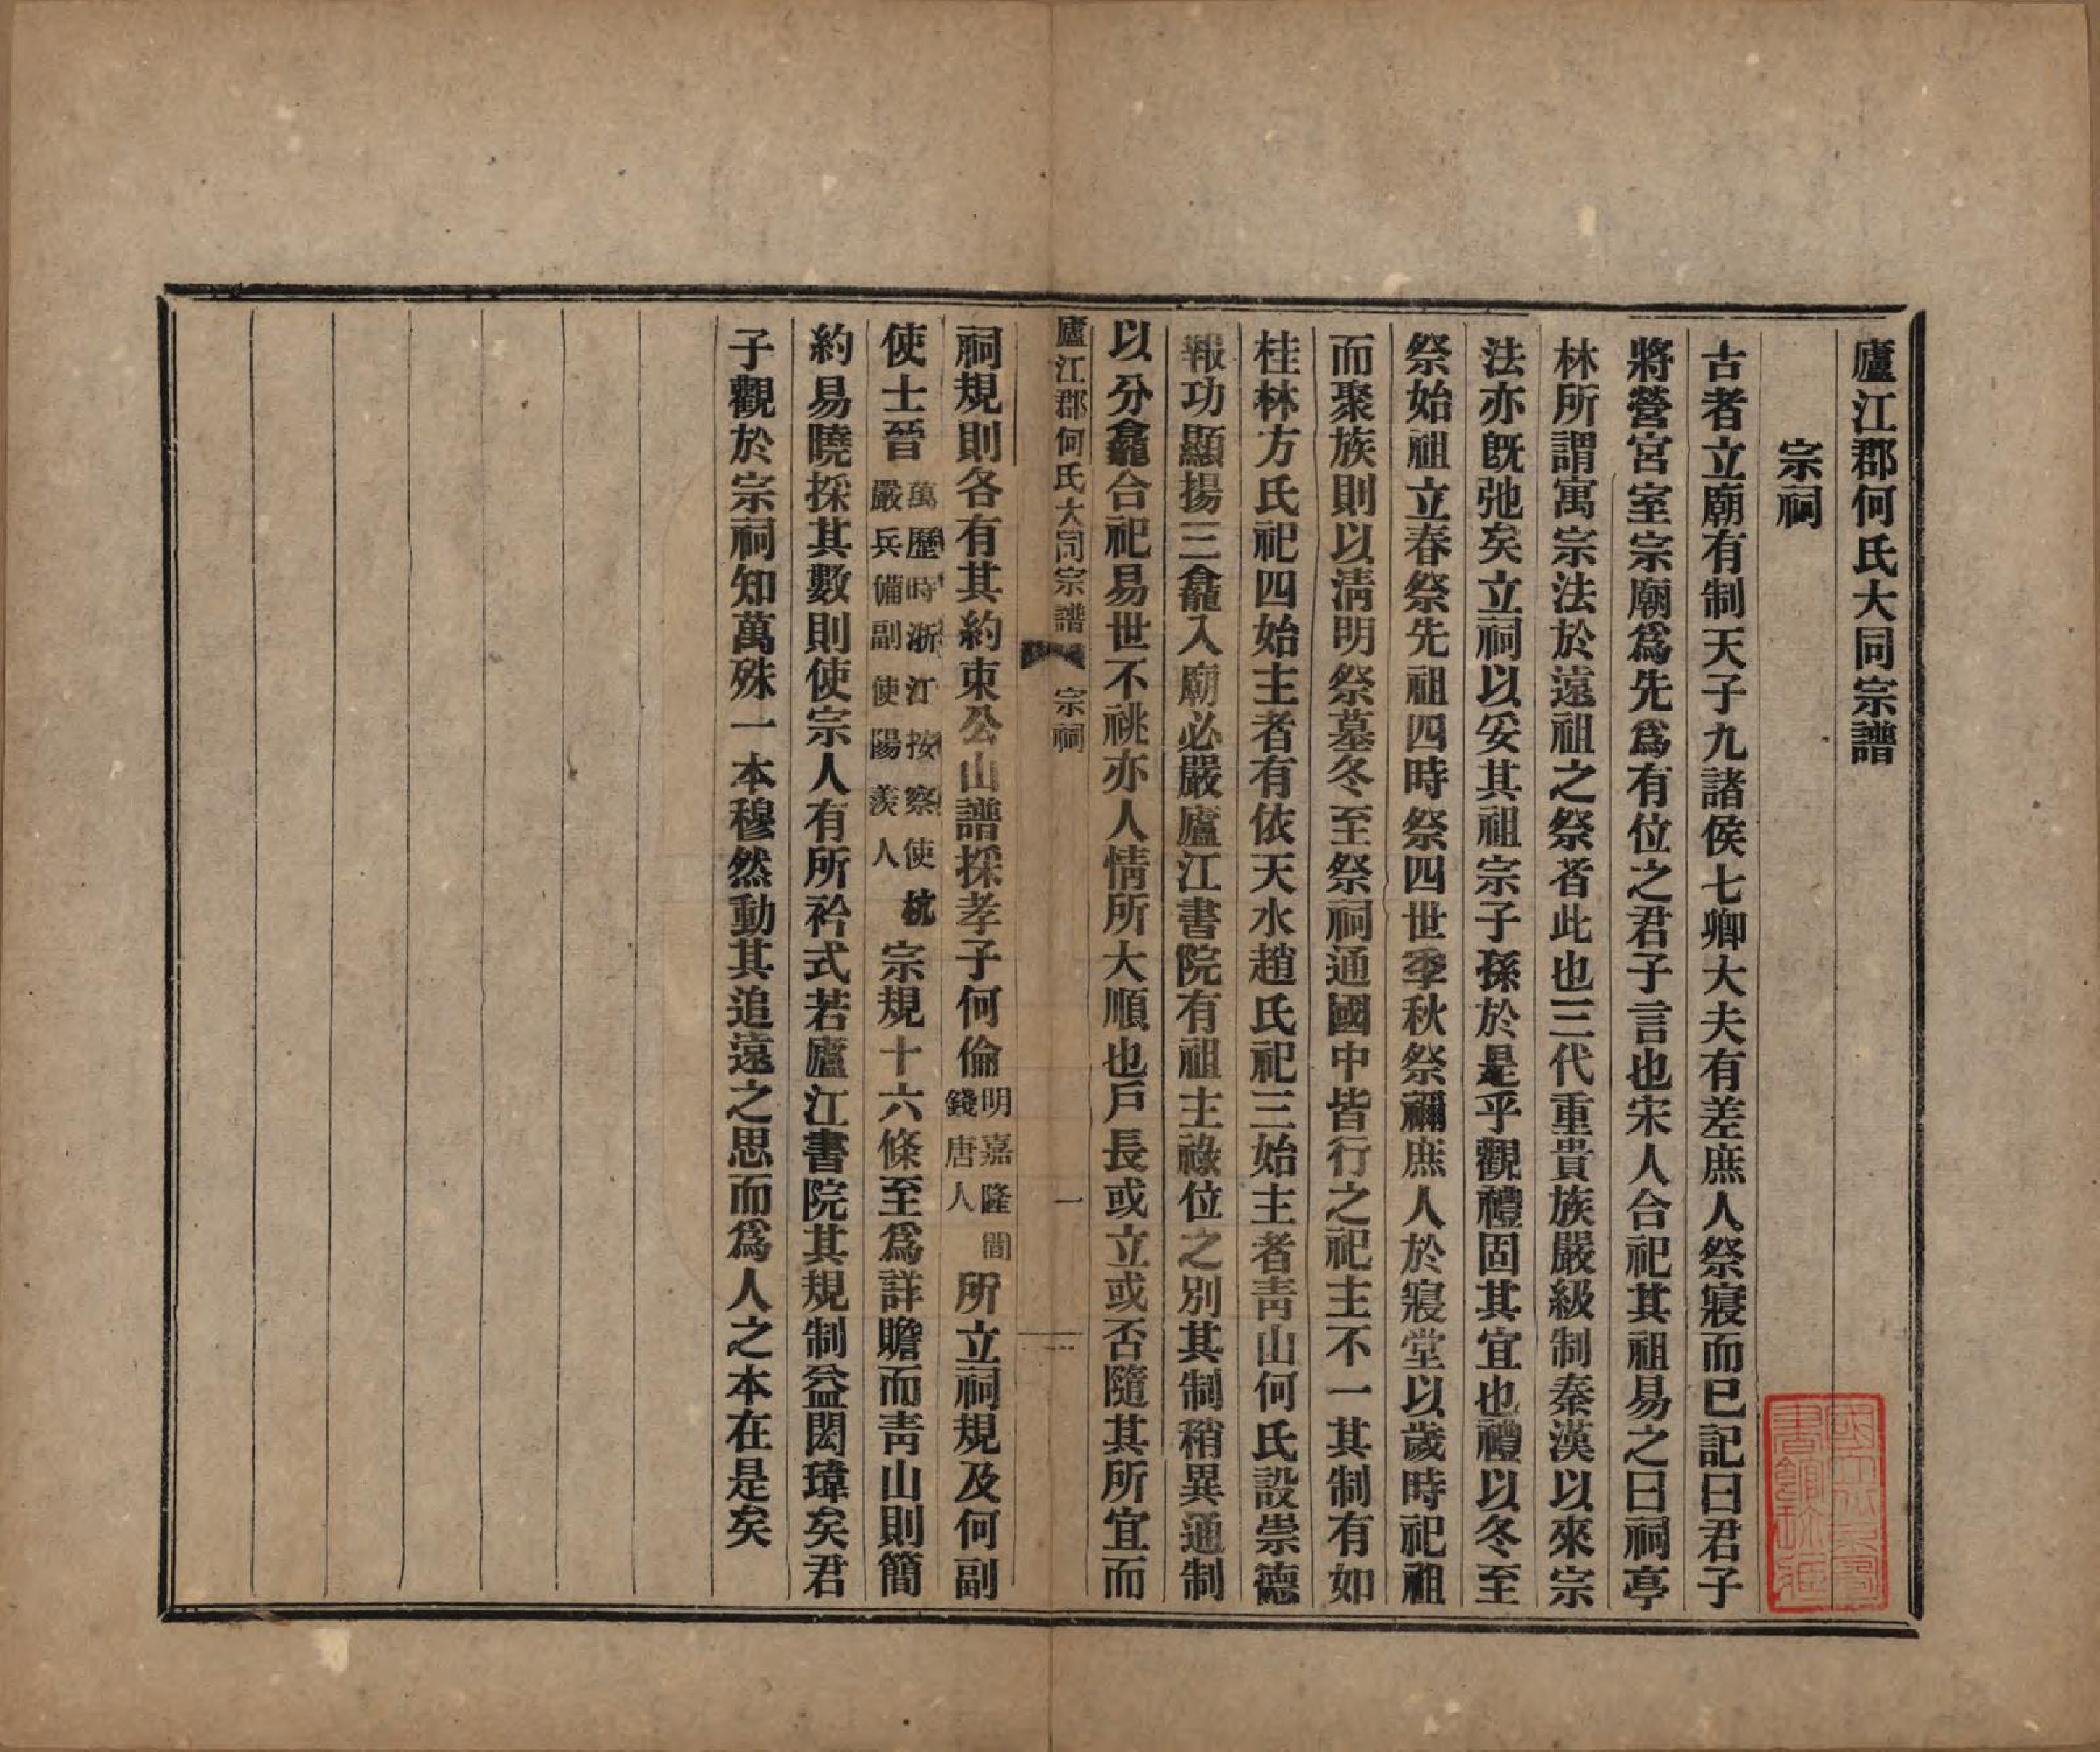 廬江郡何氏大同宗譜
宗祠
古者立廟有制天子九諸侯七卿大夫有差庶人祭寢而已記曰君子
將營宮室宗廟爲先爲有位之君子言也宋人合祀其祖易之曰祠亭
林所謂寓宗法於遠祖之祭者此也三代重貴族嚴級制秦漢以來宗
法亦旣弛矣立祠以妥其祖宗子孫於是乎觀禮固其宜也禮以冬至
祭始祖立春祭先祖四時祭四世季秋祭禰庶人於寢堂以歲時祀祖
而聚族則以淸明祭墓冬至祭祠通國中皆行之祀主不一其制有如
桂林方氏祀四始主者有依天水趙氏祀三始主者靑山何氏設崇德
報功顯揚三龕入廟必嚴廬江書院有祖主祿位之別其制稍異通制
以分龕合祀易世不祧亦人情所大順也戶長或立或否隨其所宜而
廬江郡何氏大同宗譜 宗祠 一
祠規則各有其約束公山譜採孝子何倫明嘉隆間錢唐人所立祠規及何副
使士晉萬歷時浙江按察使杭嚴兵備副使陽羨人宗規十六條至爲詳贍而靑山則簡
約易曉採其數則使宗人有所衿式若廬江書院其規制益閎瑋矣君
子觀於宗祠知萬殊一本穆然動其追遠之思而爲人之本在是矣